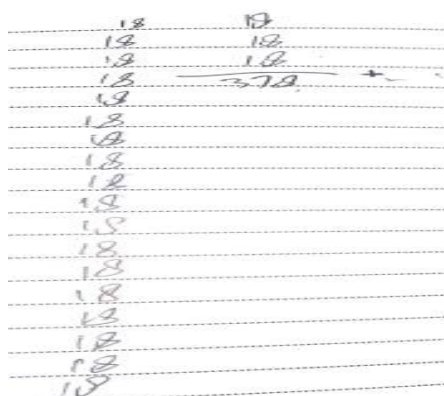 18 18
18 18
18 18
18 378 +
18
18
18
18
18
18
18
18
18
18
18
18
18
18